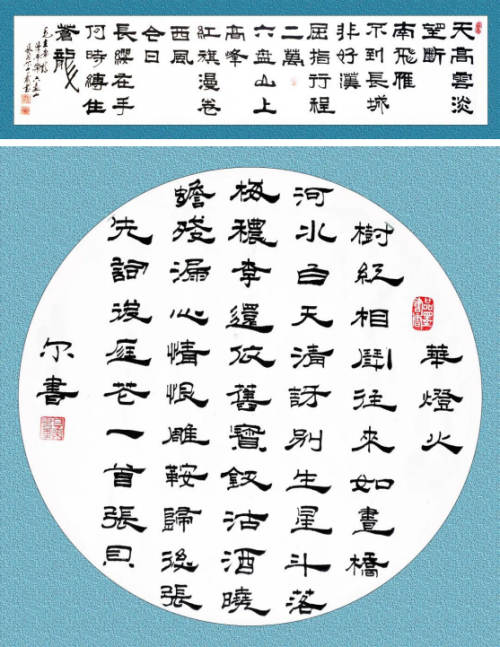 天高雲淡
望斷
南飛雁
不到長城
非好漢
屈指行程
二萬
六盤山上
高峰
紅旗漫卷
西風
今日
長纓在手
何時縛住
蒼龍
毛主席詞
清平樂六盤山
華燈火
樹紅相鬥往來如晝橋
河水白天清訝別生星斗落
梅穠李還依舊寶釵沽酒曉
蟾殘漏心情恨雕鞍歸後張
先詞後庭花一首張貝
尔書